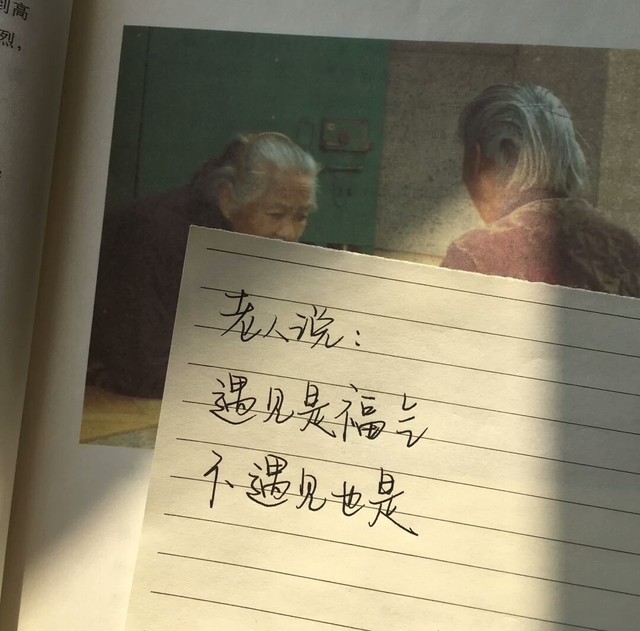 到高
烈，
老人说：
遇见是福气
不遇见也是